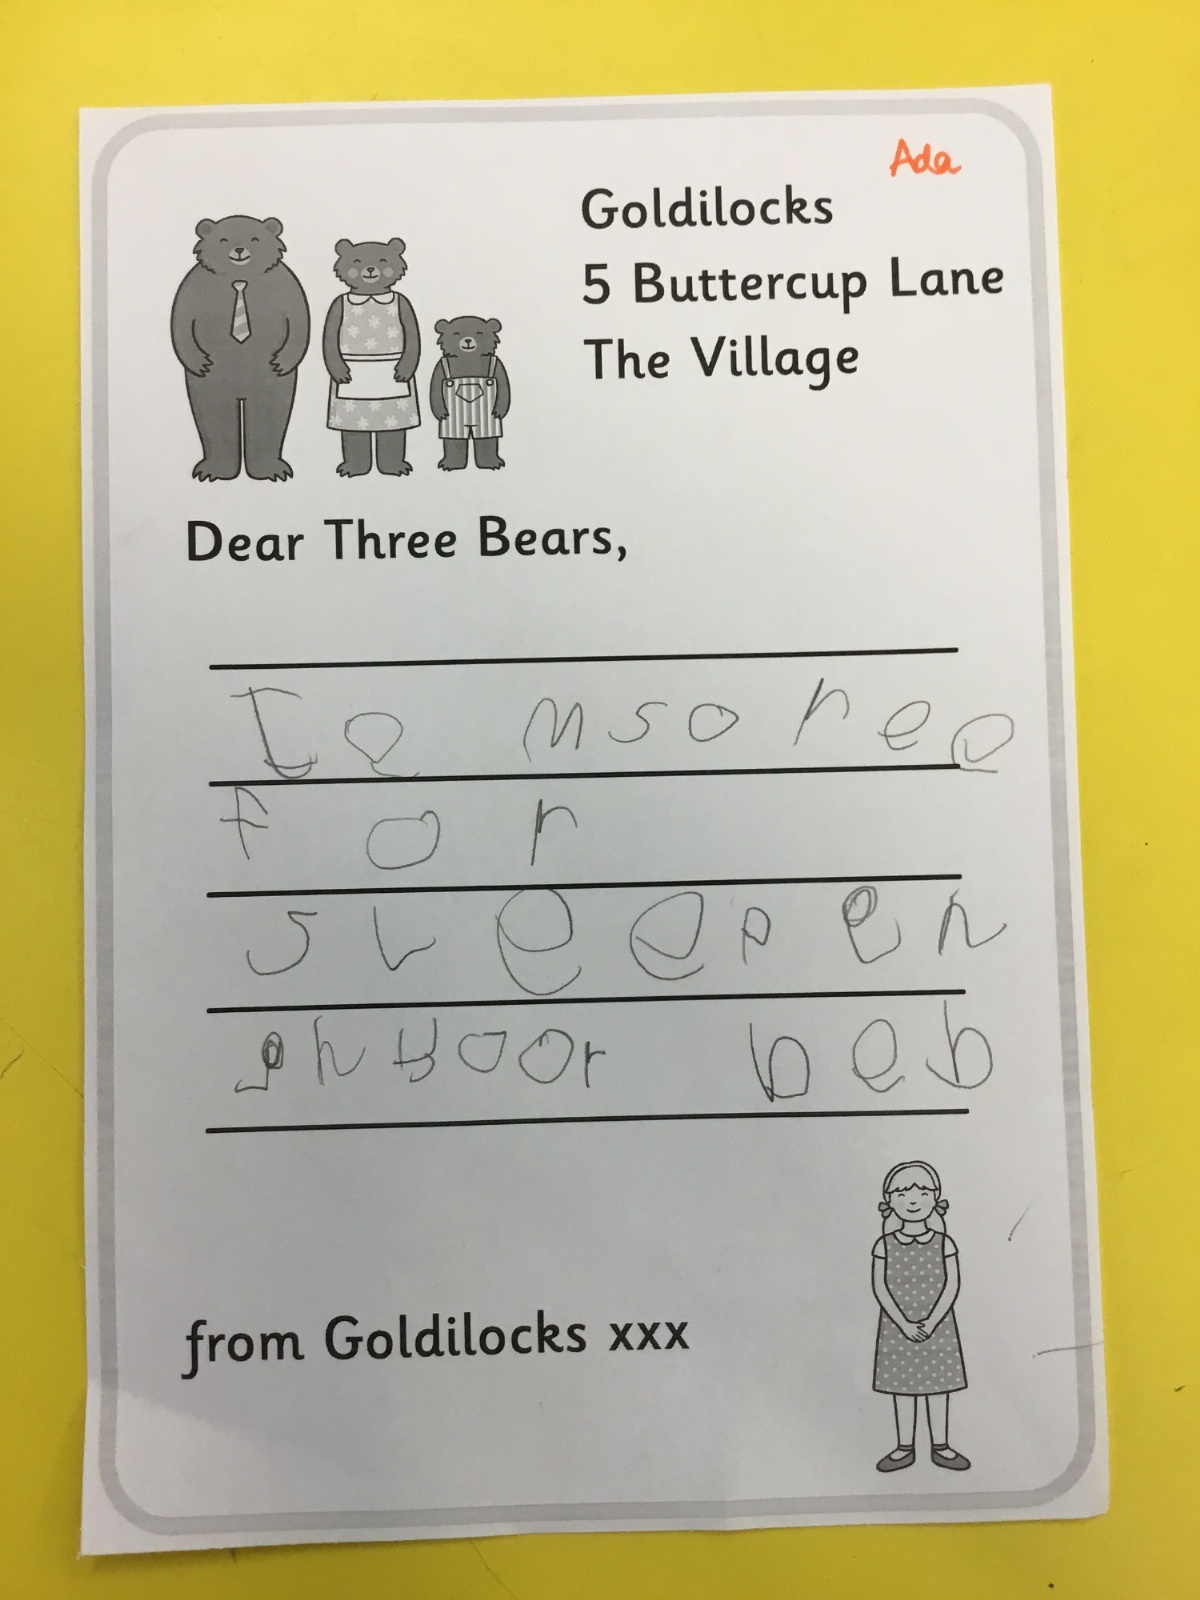 Ada
Goldilocks
5 Buttercup Lane
The Village
Dear Three Bears,
Ie msoree
for
sleepen
en yoor beb
from Goldilocks xxx